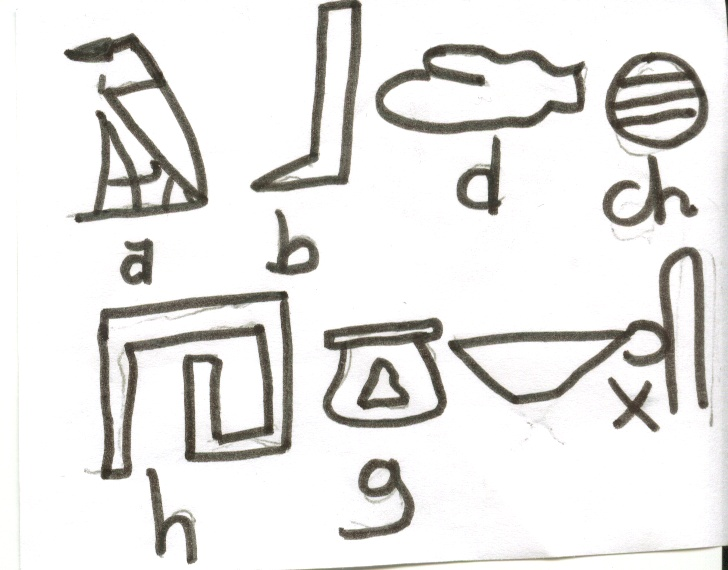 a b d ch
h g x